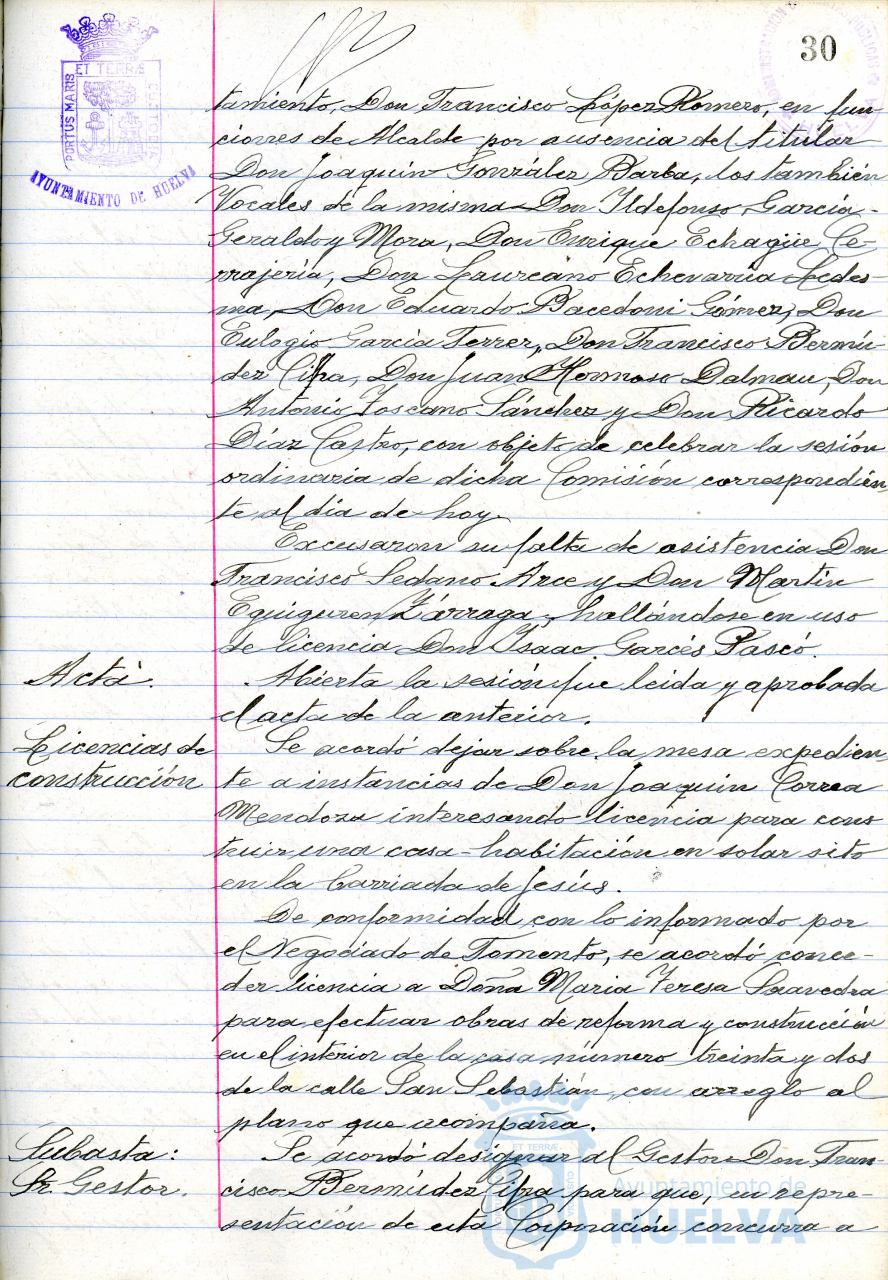 30
PORTUS MARIS
ET TERRÆ
CUSTODIA
AYUNTAMIENTO DE HUELVA
tamiento, Don Francisco López Romero, en fun-
ciones de Alcalde por ausencia del titular
Don Joaquín González Barba, los también
Vocales de la misma Don Ildefonso García-
Geraldo y Mora, Don Enrique Echagüe Ce-
rrajería, Don Laureano Echevarría Ledes-
ma, Don Eduardo Bacedoni Gómez, Don
Eulogio García Ferrer, Don Francisco Bermú-
dez Cifra, Don Juan Hermoso Dalmau, Don
Antonio Toscano Sánchez y Don Ricardo
Díaz Castro, con objeto de celebrar la sesión
ordinaria de dicha Comisión correspondien-
te al día de hoy.
Excusaron su falta de asistencia Don
Francisco Sedano Arce y Don Martín
Eguiguren Zárraga, hallándose en uso
de licencia Don Isaac Garcés Pascó.
Acta.
Abierta la sesión fue leida y aprobada
el acta de la anterior.
Licencias de
construcción
Se acordó dejar sobre la mesa expedien-
te a instancias de Don Joaquin Correa
Mendoza interesando licencia para cons-
truir una casa-habitación en solar sito
en la barriada de Jesús.
De conformidad con lo informado por
el Negociado de Fomento, se acordó conce-
der licencia a Doña Maria Teresa Saavedra
para efectuar obras de reforma y construcción
en el interior de la casa número treinta y dos
de la calle San Sebastián, con arreglo al
plano que acompaña.
Subasta:
Sr. Gestor.
Se acordó designar al Gestor Don Fran-
cisco Bermúdez Cifra para que, en repre-
sentación de esta Corporación concurra a
ET TERRÆ
Ayuntamiento de
HUELVA